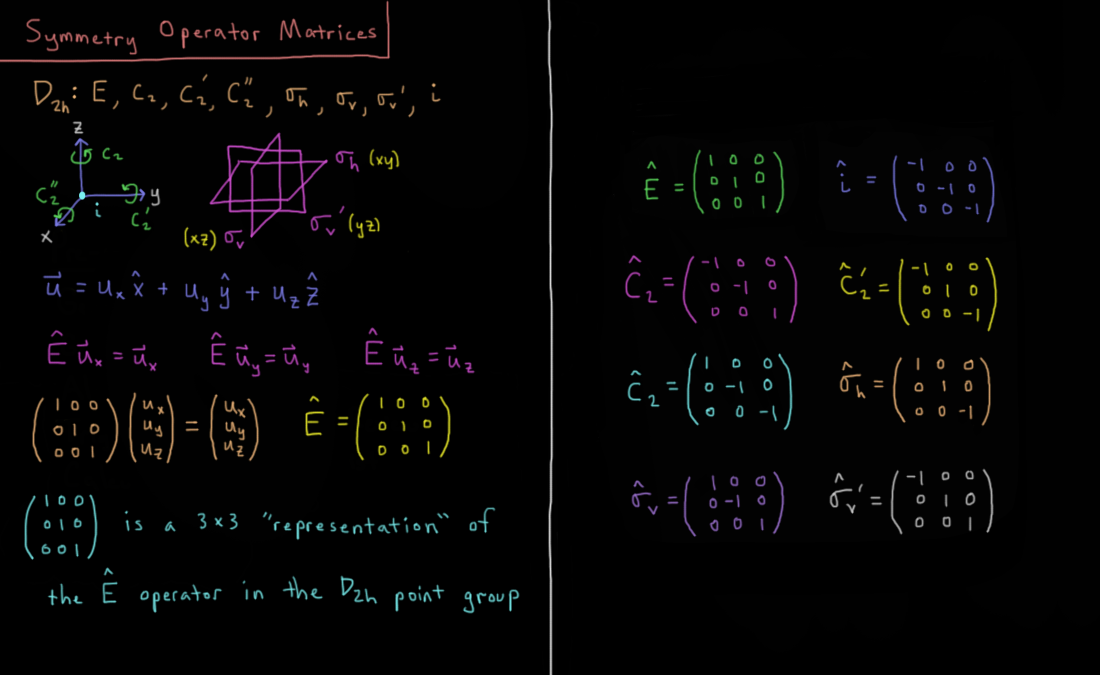 Symmetry Operator Matrices
D₂ₕ: E, C₂, C₂′, C₂″, σₕ, σᵥ, σᵥ′, i
z
C₂
C₂″
i
y
C₂′
x
σₕ (xy)
σᵥ′ (yz)
(xz) σᵥ
u⃗ = uₓ x̂ + u_y ŷ + u_z ẑ
Ê u⃗ₓ = u⃗ₓ Ê u⃗_y = u⃗_y Ê u⃗_z = u⃗_z
(1 0 0; 0 1 0; 0 0 1) (uₓ; u_y; u_z) = (uₓ; u_y; u_z) Ê = (1 0 0; 0 1 0; 0 0 1)
(1 0 0; 0 1 0; 0 0 1) is a 3×3 "representation" of
the Ê operator in the D₂ₕ point group
Ê = (1 0 0; 0 1 0; 0 0 1) î = (-1 0 0; 0 -1 0; 0 0 -1)
Ĉ₂ = (-1 0 0; 0 -1 0; 0 0 1) Ĉ₂′ = (-1 0 0; 0 1 0; 0 0 -1)
Ĉ₂ = (1 0 0; 0 -1 0; 0 0 -1) σ̂ₕ = (1 0 0; 0 1 0; 0 0 -1)
σ̂ᵥ = (1 0 0; 0 -1 0; 0 0 1) σ̂ᵥ′ = (-1 0 0; 0 1 0; 0 0 1)